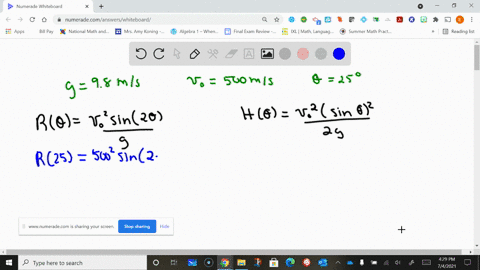 Numerade Whiteboard
numerade.com/answers/whiteboard/
Apps
Bill Pay
National Math and...
Algebra 1 – Wheno...
Final Exam Review -...
IXL | Math, Languag...
Summer Math Pract...
Reading list
g = 9.8 m/s v₀ = 500 m/s θ = 25°
R(θ) = v₀² sin(2θ) / g
H(θ) = v₀² (sin θ)² / 2g
R(25) = 500² sin(2·
www.numerade.com is sharing your screen. Stop sharing Hide
Type here to search
4:29 PM
7/4/2021